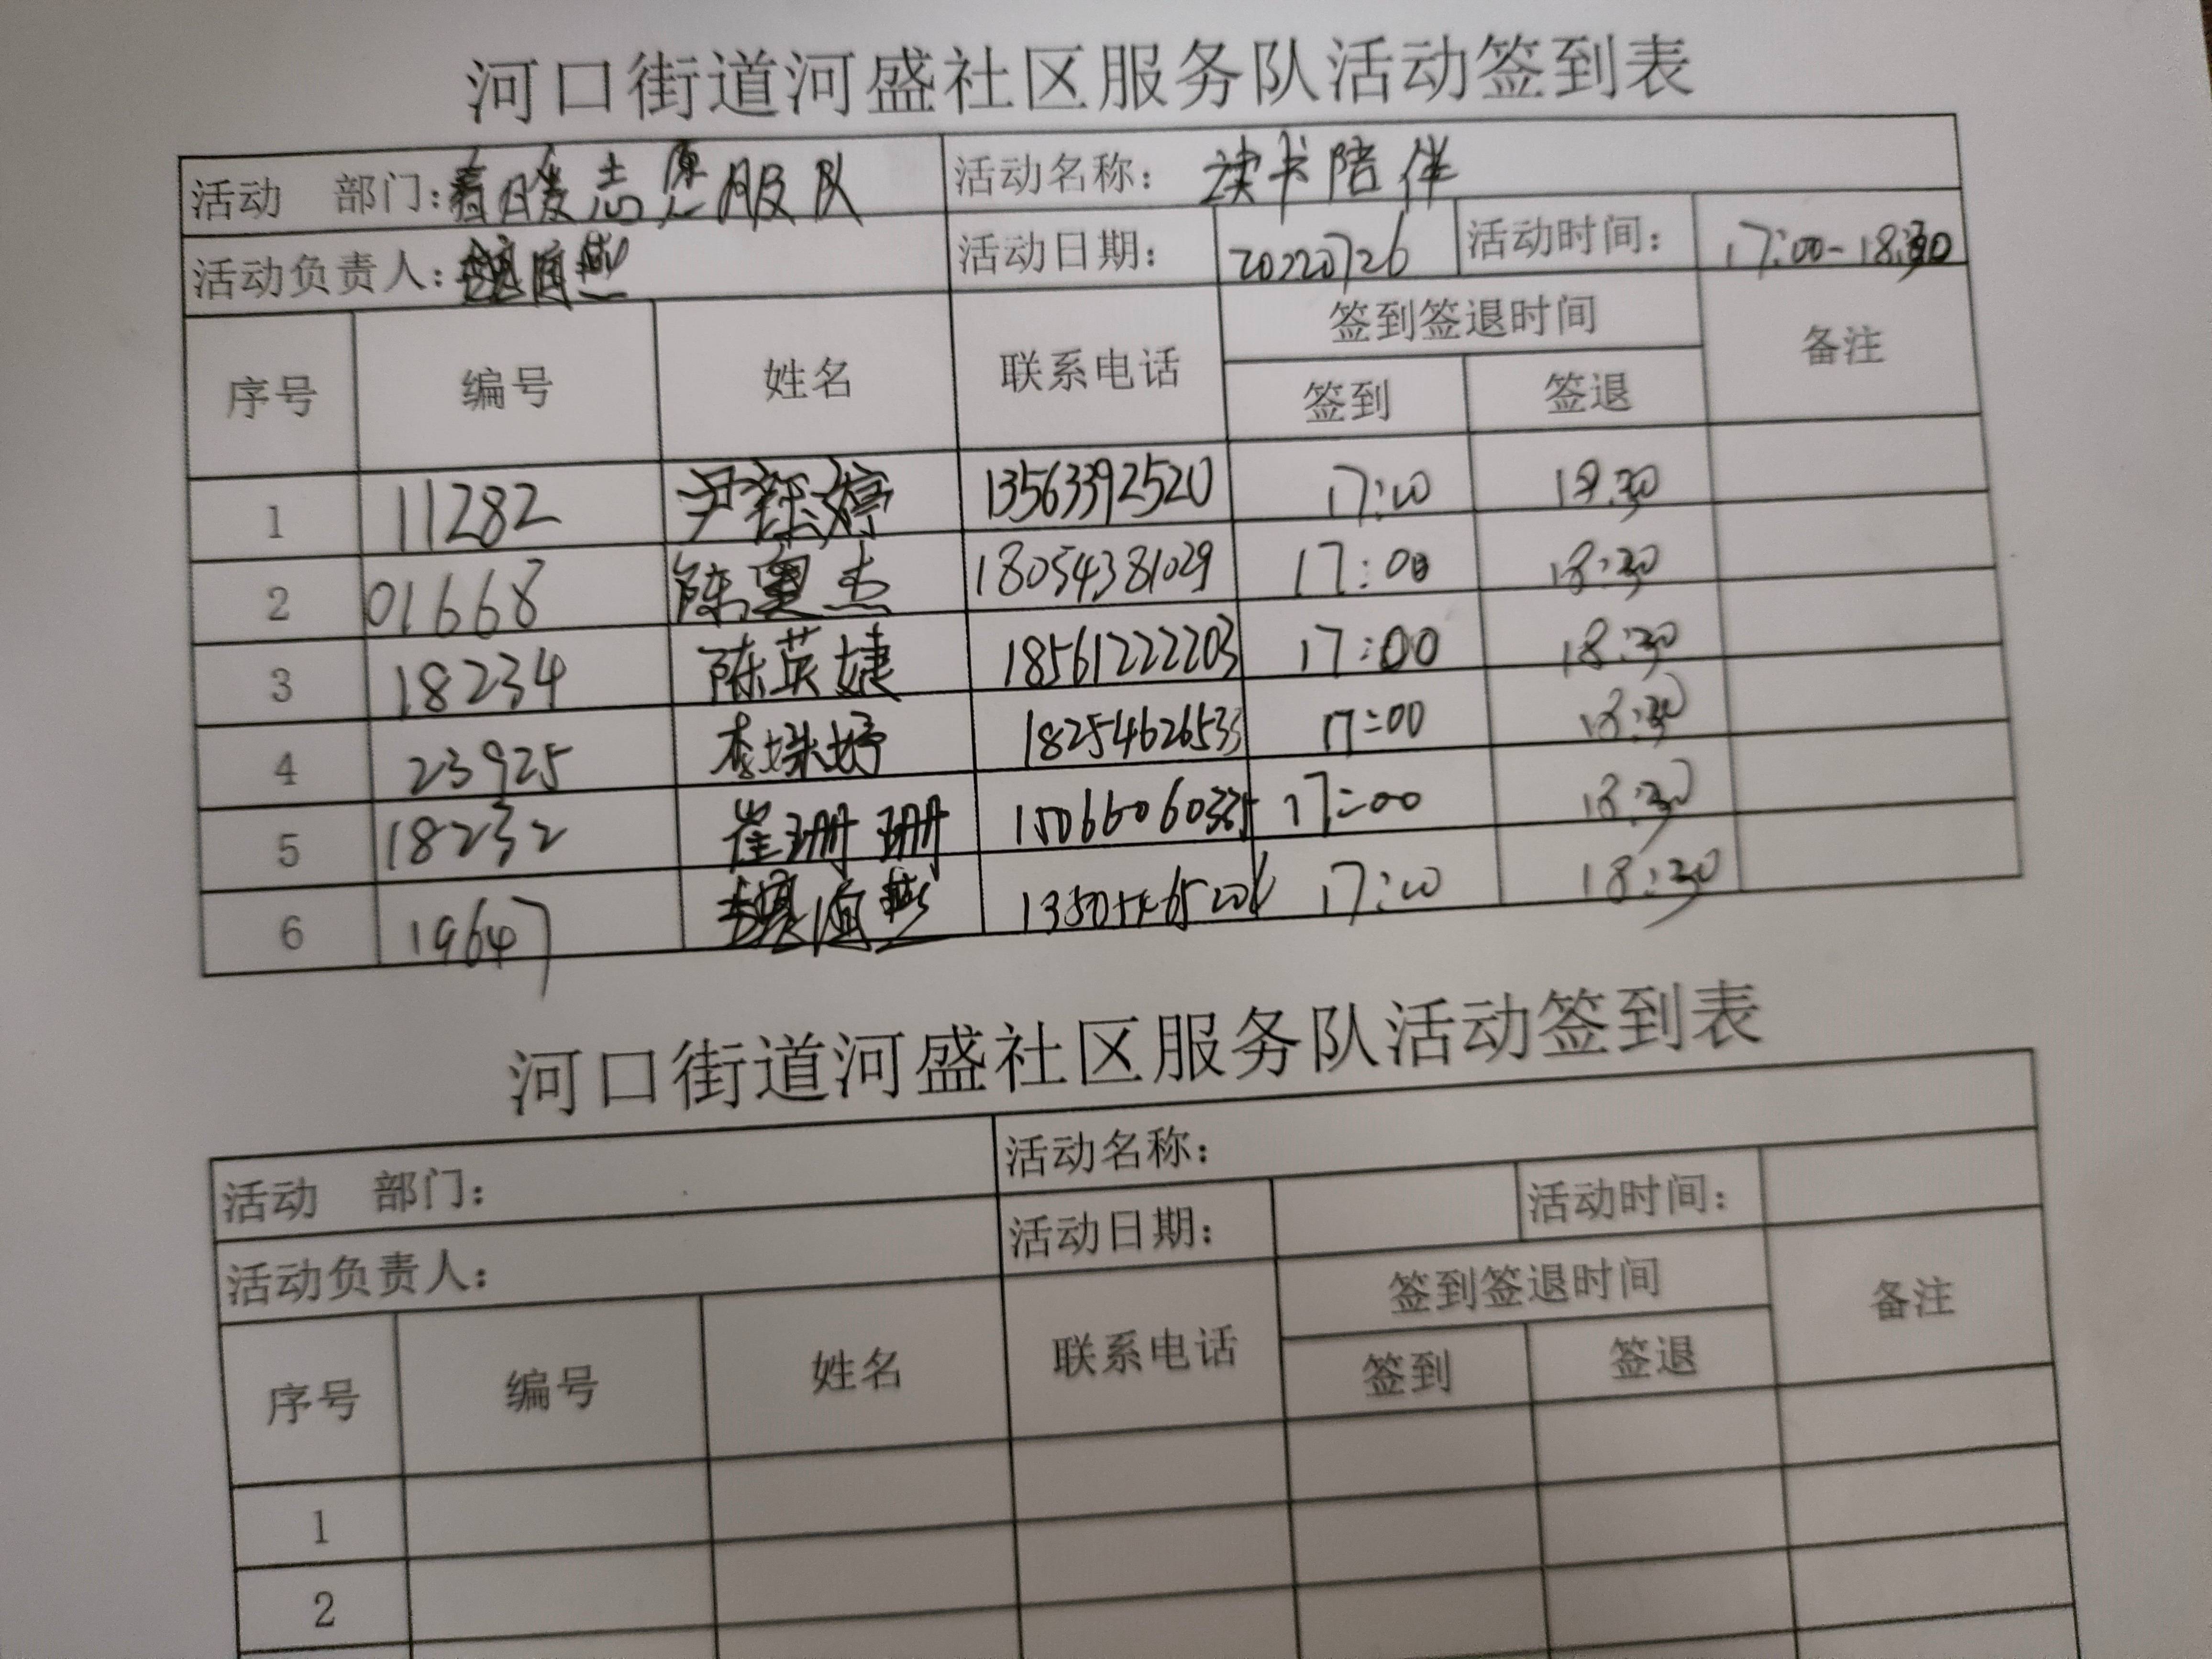 河口街道河盛社区服务队活动签到表
活动 部门：春暖志愿服队 活动名称： 读书陪伴
活动负责人： 活动日期： 20220726 活动时间： 17:00-18:30
序号 编号 姓名 联系电话 签到签退时间 备注
签到 签退
1 11282 尹钰婷 13563392520 17:00 18:30
2 01668 陈 杰 18054381029 17:00 18:30
3 18234 陈英婕 18561222203 17:00 18:30
4 23925 李姝婷 18254626533 17:00 18:30
5 18232 崔珊珊 15066060335 17:00 18:30
6 19647 17:00 18:30
河口街道河盛社区服务队活动签到表
活动 部门： 活动名称：
活动负责人： 活动日期： 活动时间：
序号 编号 姓名 联系电话 签到签退时间 备注
签到 签退
1
2